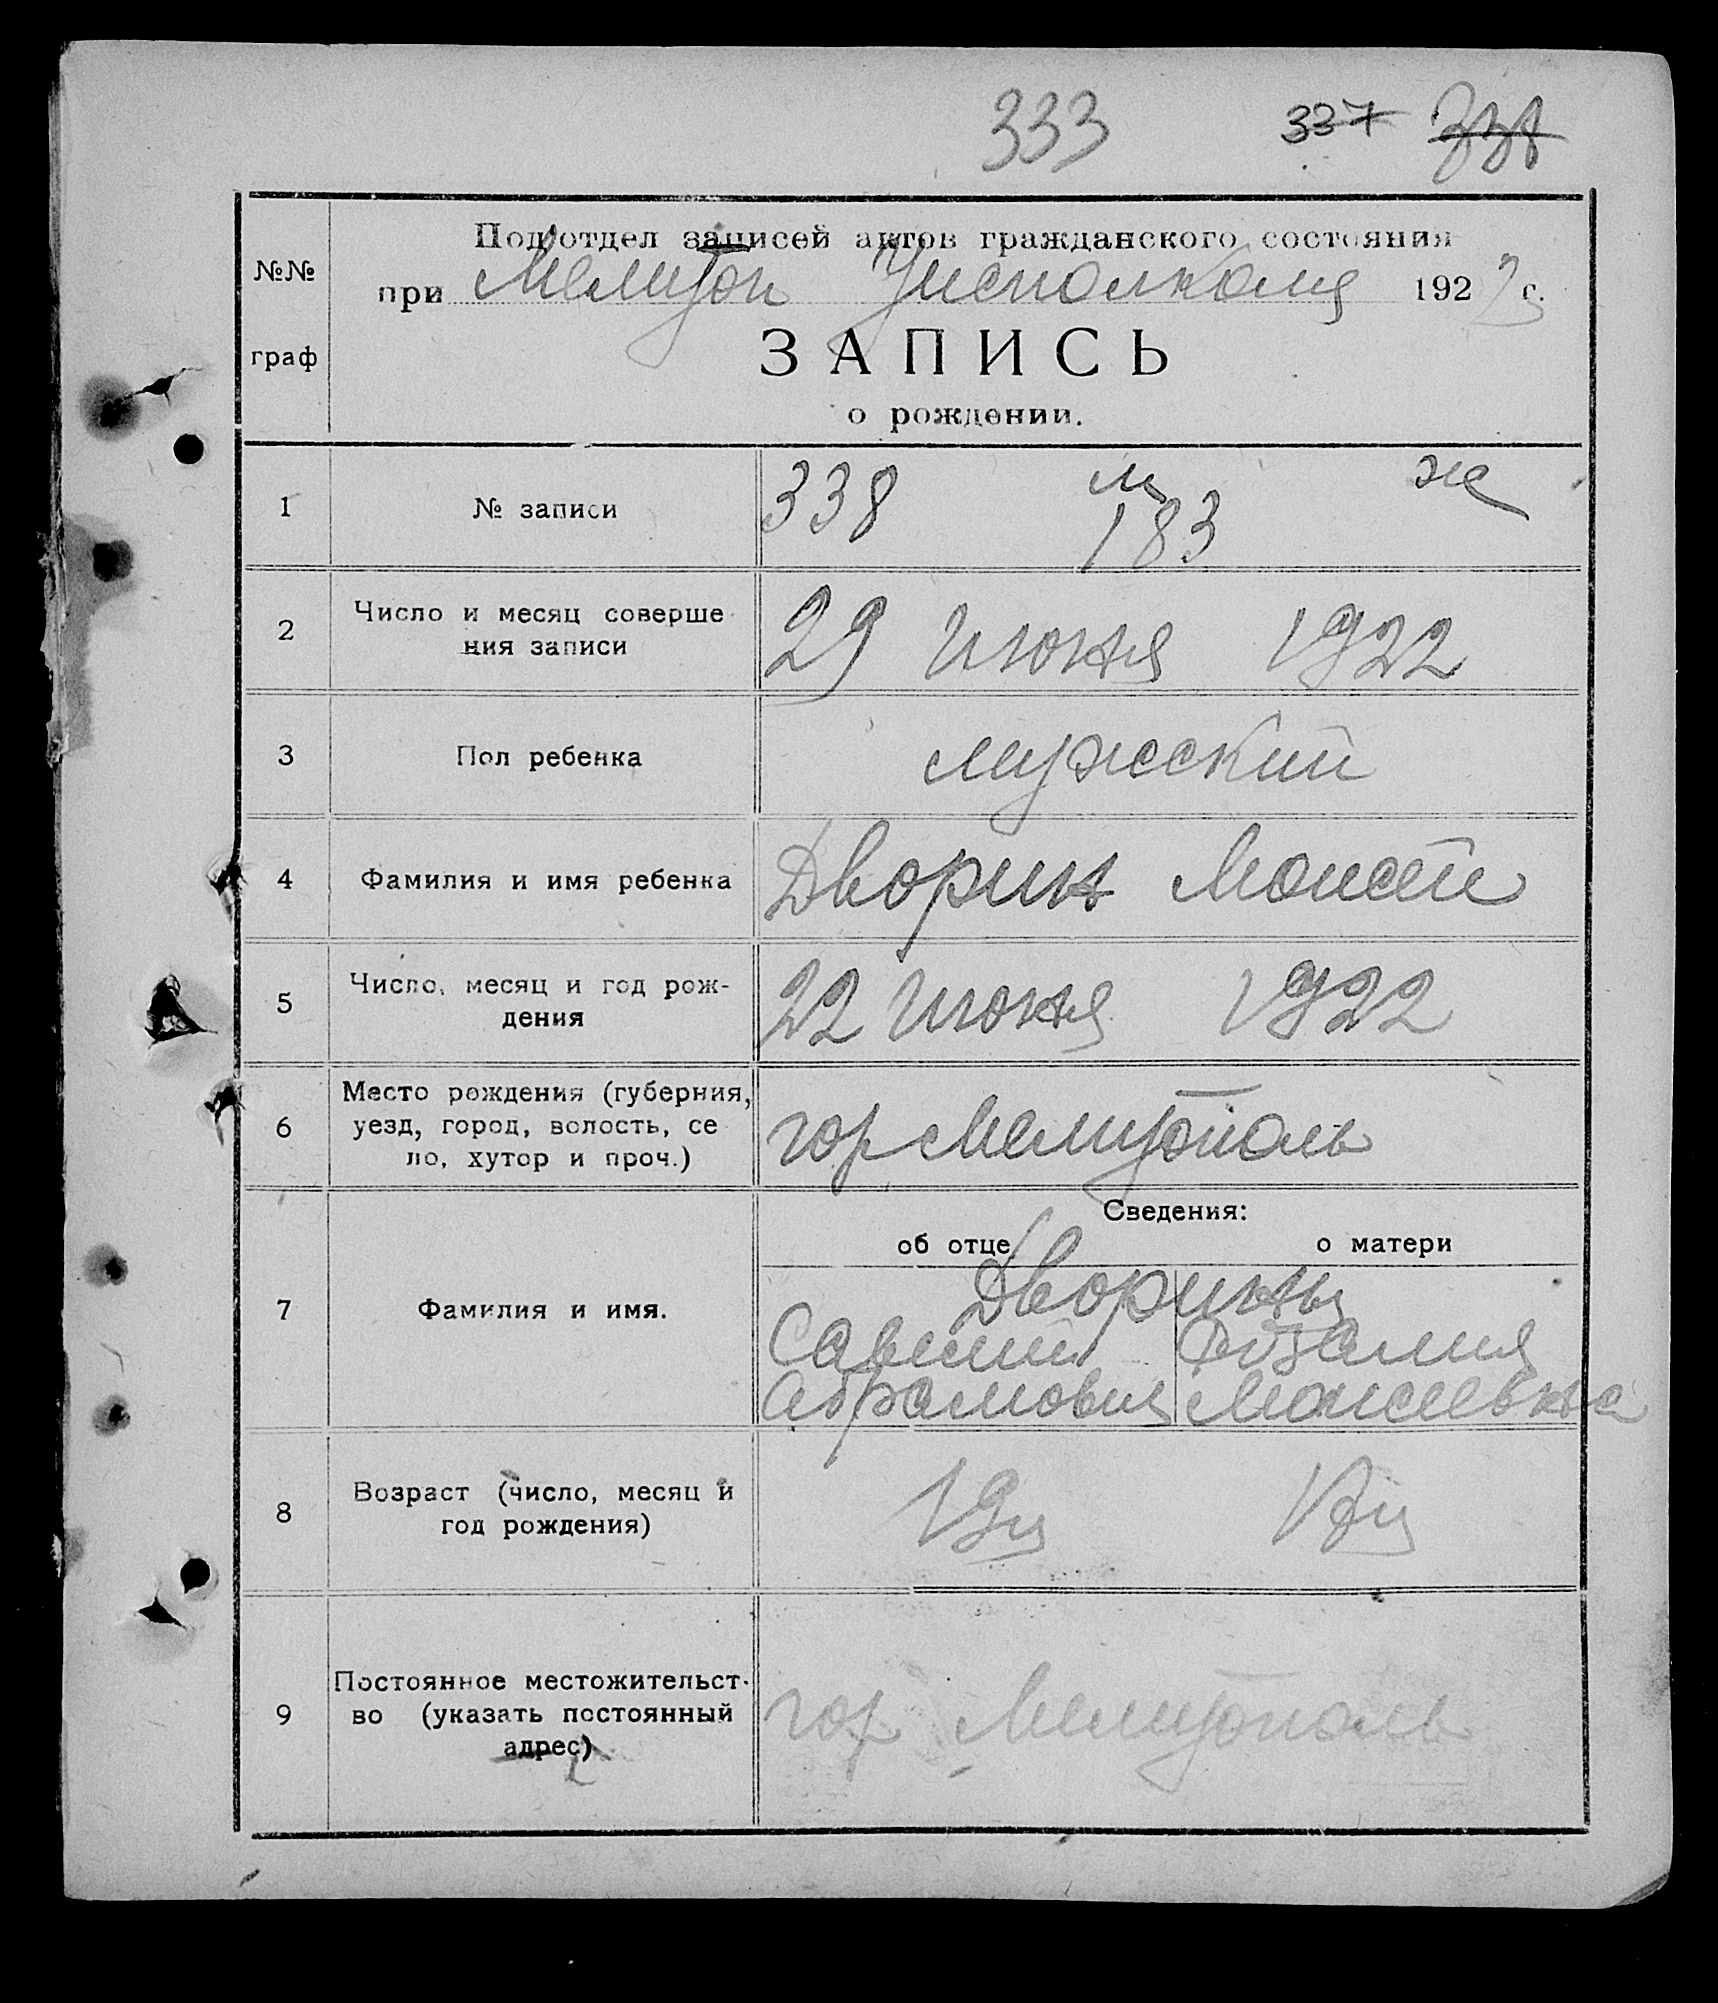 333 337 338
№№ граф
Подотдел записей актов гражданского состояния
при Мелитоп Уисполкома 192 2 г.
ЗАПИСЬ
о рождении.
1 № записи 338 м 183 ж
2 Число и месяц соверше
ния записи 29 июня 1922
3 Пол ребенка мужеский
4 Фамилия и имя ребенка Дворин Моисей
5 Число, месяц и год рож-
дения 22 июня 1922
6 Место рождения (губерния,
уезд, город, волость, се
ло, хутор и проч.) гор Мелитополь
Сведения:
об отце о матери
7 Фамилия и имя. Дворины
Савелий Розалия
Абрамович Моисеевна
8 Возраст (число, месяц и
год рождения)
9 Постоянное местожительст-
во (указать постоянный
адрес) гор Мелитополь